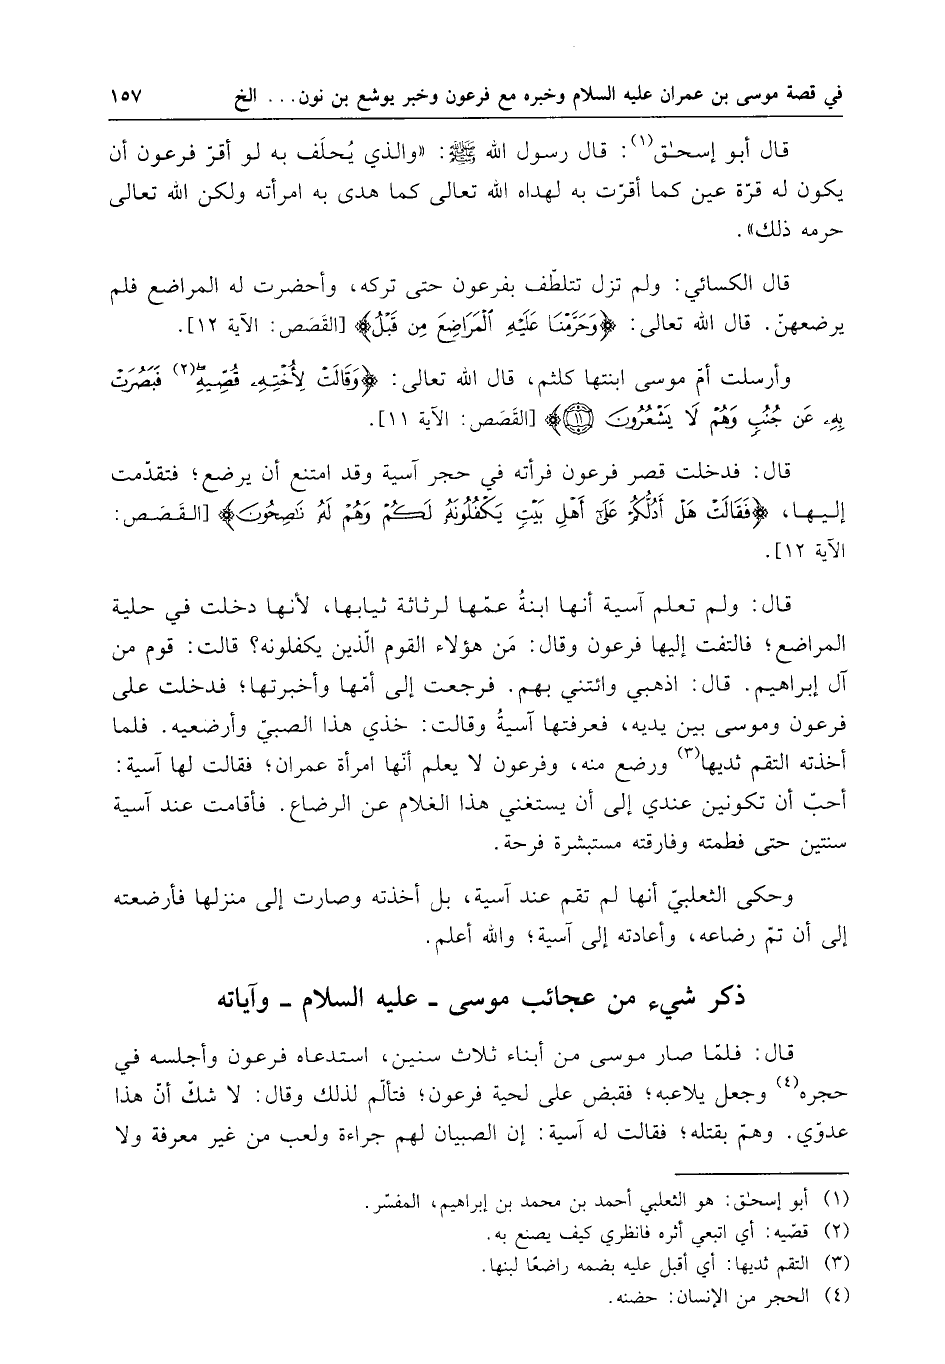 في قصة موسى بن عمران عليه السلام وخبره مع فرعون وخبر يوشع بن نون... الخ ١٥٧
قال أبو إسحـٰق(١): قال رسول الله ﷺ: «والذي يُحلَف به لو أقرّ فرعون أن
يكون له قرّة عين كما أقرّت به لهداه الله تعالى كما هدى به امرأته ولكن الله تعالى
حرمه ذلك».
قال الكسائي: ولم تزل تتلطّف بفرعون حتى تركه، وأحضرت له المراضع فلم
يرضعهنّ. قال الله تعالى: ﴿وَحَرَّمْنَا عَلَيْهِ الْمَرَاضِعَ مِن قَبْلُ﴾ [القَصَص: الآية ١٢].
وأرسلت أمّ موسى ابنتها كلثم، قال الله تعالى: ﴿وَقَالَتْ لِأُخْتِهِۦ قُصِّيهِۖ(٢) فَبَصُرَتْ
بِهِۦ عَن جُنُبٍ وَهُمْ لَا يَشْعُرُونَ ۝١١﴾ [القَصَص: الآية ١١].
قال: فدخلت قصر فرعون فرأته في حجر آسية وقد امتنع أن يرضع؛ فتقدّمت
إليـهـا، ﴿فَقَالَتْ هَلْ أَدُلُّكُمْ عَلَىٰٓ أَهْلِ بَيْتٍ يَكْفُلُونَهُۥ لَكُمْ وَهُمْ لَهُۥ نَـٰصِحُونَ﴾ [القَـصَـص:
الآية ١٢].
قال: ولم تعلم آسية أنها ابنةُ عمّها لرثاثة ثيابها، لأنها دخلت في حلية
المراضع؛ فالتفت إليها فرعون وقال: مَن هؤلاء القوم الّذين يكفلونه؟ قالت: قوم من
آل إبراهيم. قال: اذهبي وائتني بهم. فرجعت إلى أمّها وأخبرتها؛ فدخلت على
فرعون وموسى بين يديه، فعرفتها آسيةُ وقالت: خذي هذا الصبيّ وأرضعيه. فلما
أخذته التقم ثديها(٣) ورضع منه، وفرعون لا يعلم أنّها امرأة عمران؛ فقالت لها آسية:
أحبّ أن تكونين عندي إلى أن يستغني هذا الغلام عن الرضاع. فأقامت عند آسية
سنتين حتى فطمته وفارقته مستبشرة فرحة.
وحكى الثعلبيّ أنها لم تقم عند آسية، بل أخذته وصارت إلى منزلها فأرضعته
إلى أن تمّ رضاعه، وأعادته إلى آسية؛ والله أعلم.
ذكر شيء من عجائب موسى ـ عليه السلام ـ وآياته
قال: فلمّا صار موسى من أبناء ثلاث سنين، استدعاه فرعون وأجلسه في
حجره(٤) وجعل يلاعبه؛ فقبض على لحية فرعون؛ فتألّم لذلك وقال: لا شكّ أنّ هذا
عدوّي. وهمّ بقتله؛ فقالت له آسية: إن الصبيان لهم جراءة ولعب من غير معرفة ولا
(١) أبو إسحـٰق: هو الثعلبي أحمد بن محمد بن إبراهيم، المفسّر.
(٢) قصّيه: أي اتبعي أثره فانظري كيف يصنع به.
(٣) التقم ثديها: أي أقبل عليه بضمه راضعًا لبنها.
(٤) الحجر من الإنسان: حضنه.